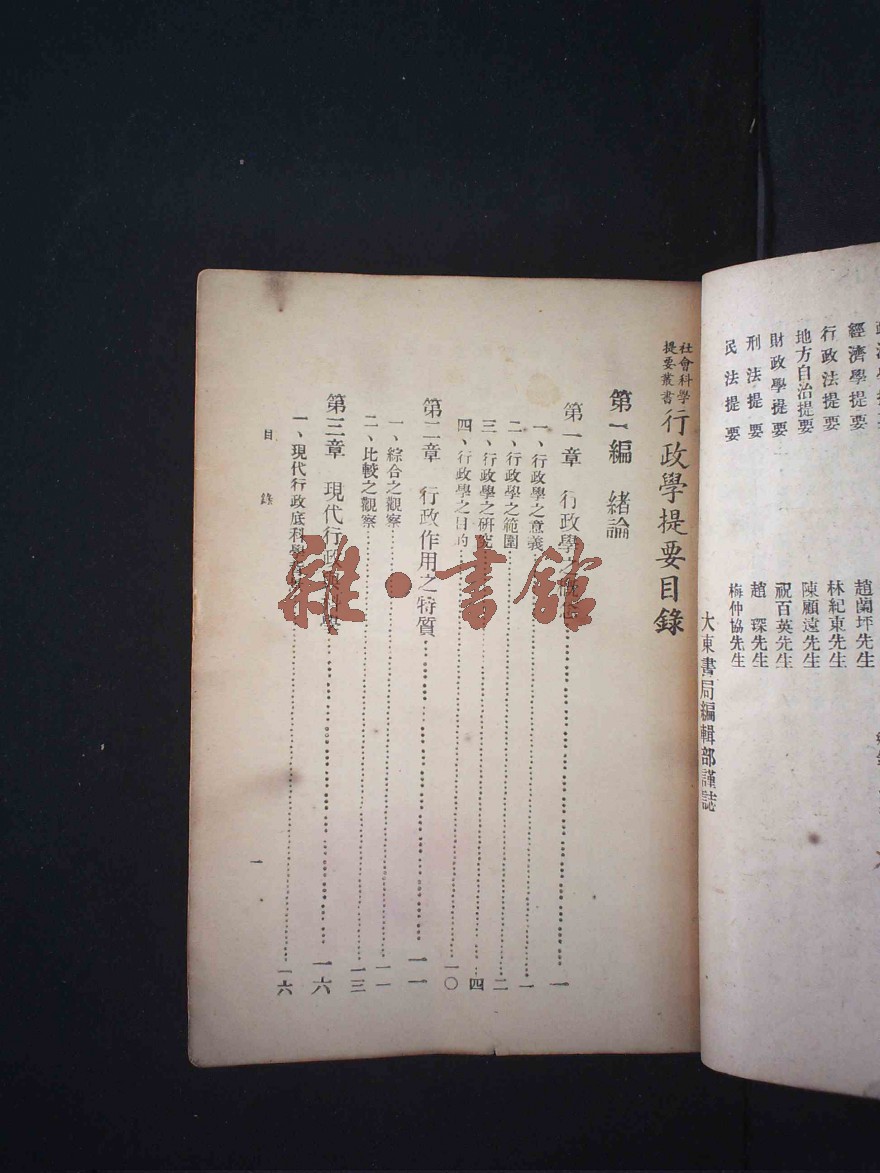 經濟學提要 趙蘭坪先生
行政法提要 林紀東先生
地方自治提要 陳顧遠先生
財政學提要 祝百英先生
刑法提要 趙琛先生
民法提要 梅仲協先生
大東書局編輯部謹誌
社會科學
提要叢書
行政學提要目錄
第一編 緒論
第一章 行政學之概念……一
一、行政學之意義……一
二、行政學之範圍……二
三、行政學之研究……四
四、行政學之目的……一〇
第二章 行政作用之特質……一一
一、綜合之觀察……一一
二、比較之觀察……一三
第三章 現代行政 科學……一六
一、現代行政底科學……一六
目錄
一
雜·書館